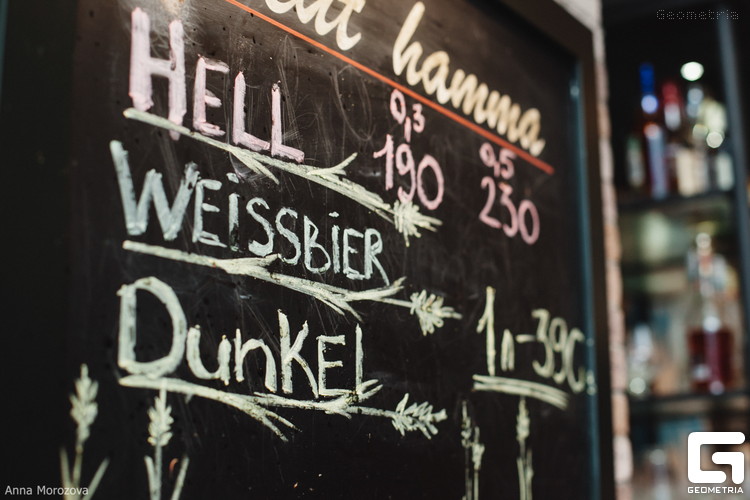 Geometria
hamma.
HELL
0,3
0,5
190
230
WEISSBIER
DunKEl
1л-390
Anna Morozova
GEOMETRIA